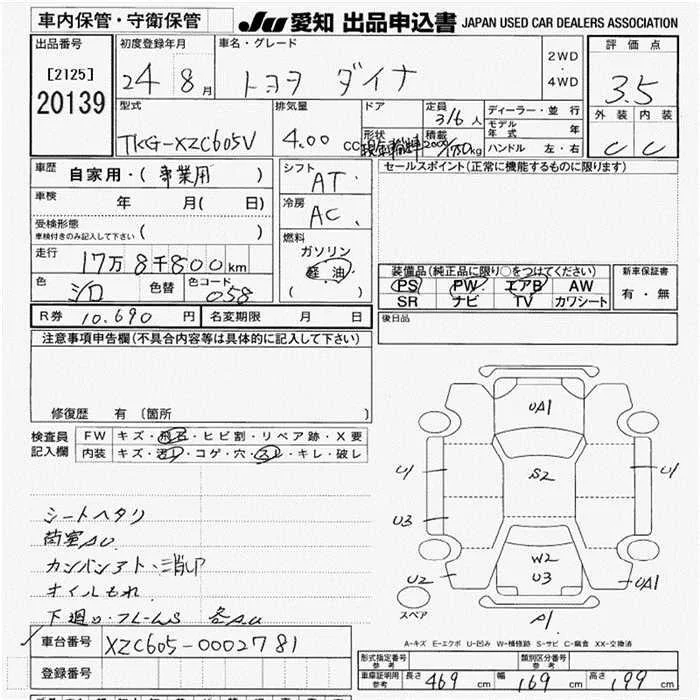 車内保管・守衛保管
JU 愛知 出品申込書 JAPAN USED CAR DEALERS ASSOCIATION
出品番号
[2125]
20139
初度登録年月
24 8月
車名・グレード
トヨタ ダイナ
2WD
・
4WD
評価点
3.5
外装 内装
C C
型式
TKG-XZC605V
排気量
4.00 cc
ドア
形状
定員
3/6人
積載
2000/1750kg
ディーラー・並行
モデル年式 年
ハンドル 左・右
車歴
自家用・(事業用)
車検 年 月( 日)
受検形態
車検付きのみ記入して下さい ( )
走行
17万8千800km
色 シロ 色替 色コード 058
シフト
AT
冷房
AC
燃料
ガソリン
軽油
( )
セールスポイント(正常に機能するものに限ります)
装備品(純正品に限り○をつけてください)
PS PW エアB AW
SR ナビ TV カワシート
新車保証書
有・無
R券 10.690 円 名変期限 月 日
後日品
注意事項申告欄(不具合内容等は具体的に記入して下さい)
修復歴 有 〔箇所 〕
検査員
記入欄
FW キズ・飛石・ヒビ割・リペア跡・X要
内装 キズ・汚れ・コゲ・穴・スレ・キレ・破レ
シートヘタリ
荷室AU
カンバンアト・消し
オイルもれ
下廻り・フレームS 各AU
UA1
U1
S2
U1
U3
W2
U3
U2
UA1
A1
スペア
A-キズ E-エクボ U-凹み W-補修跡 S-サビ C-腐食 XX-交換済
車台番号 XZC605-0002781
登録番号
形式指定番号
参考
類別区分番号
参考
車庫証明用
参考
長さ 469 cm 幅 169 cm 高さ 199 cm